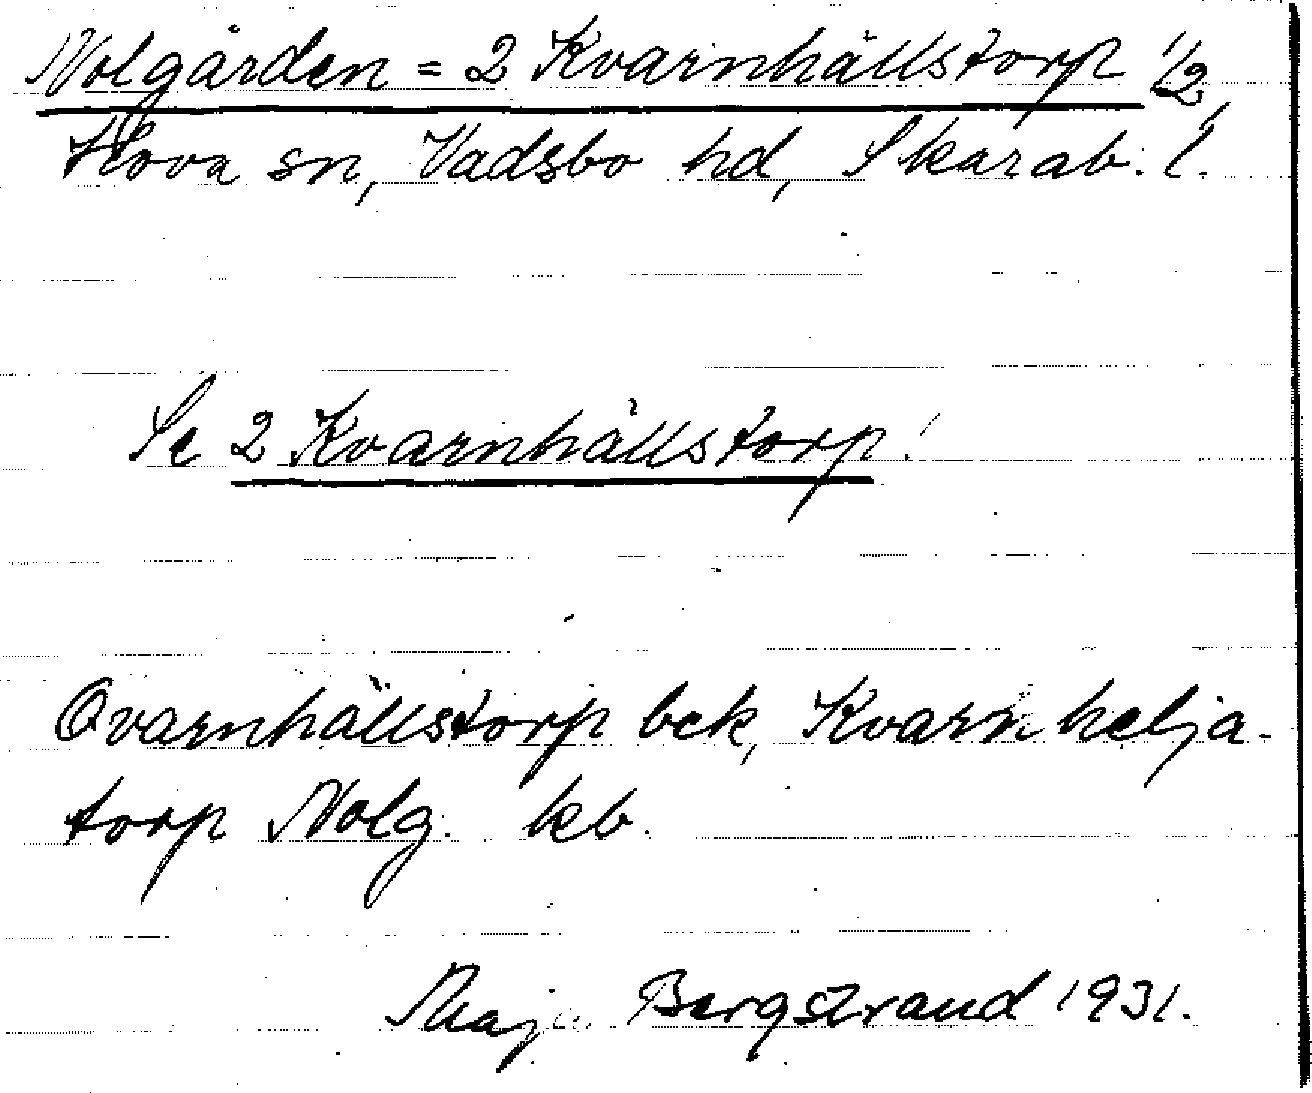 Nolgården = 2 Kvarnhällstorp 1/2,
Hova sn, Vadsbo hd, Skarab. l.
Se 2 Kvarnhällstorp!
Qvarnhällstorp bek, Kvarnhelja-
torp Nolg. kb.
Maja Bergstrand 1931.